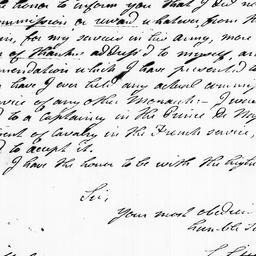 honor to inform you that I did no
Commission or reward whatever from th
in, for my services in the Army, more
of thanks address'd to myself, an
mendation which I have presented to
have I ever held any actual commis
vice of any other Monarch:— I were
d to a captaincy in the Prince De
ent of Cavalry in the French service,
d to accept it.
I have the honor to be with the high
Sir,
Your most obedien
humble S